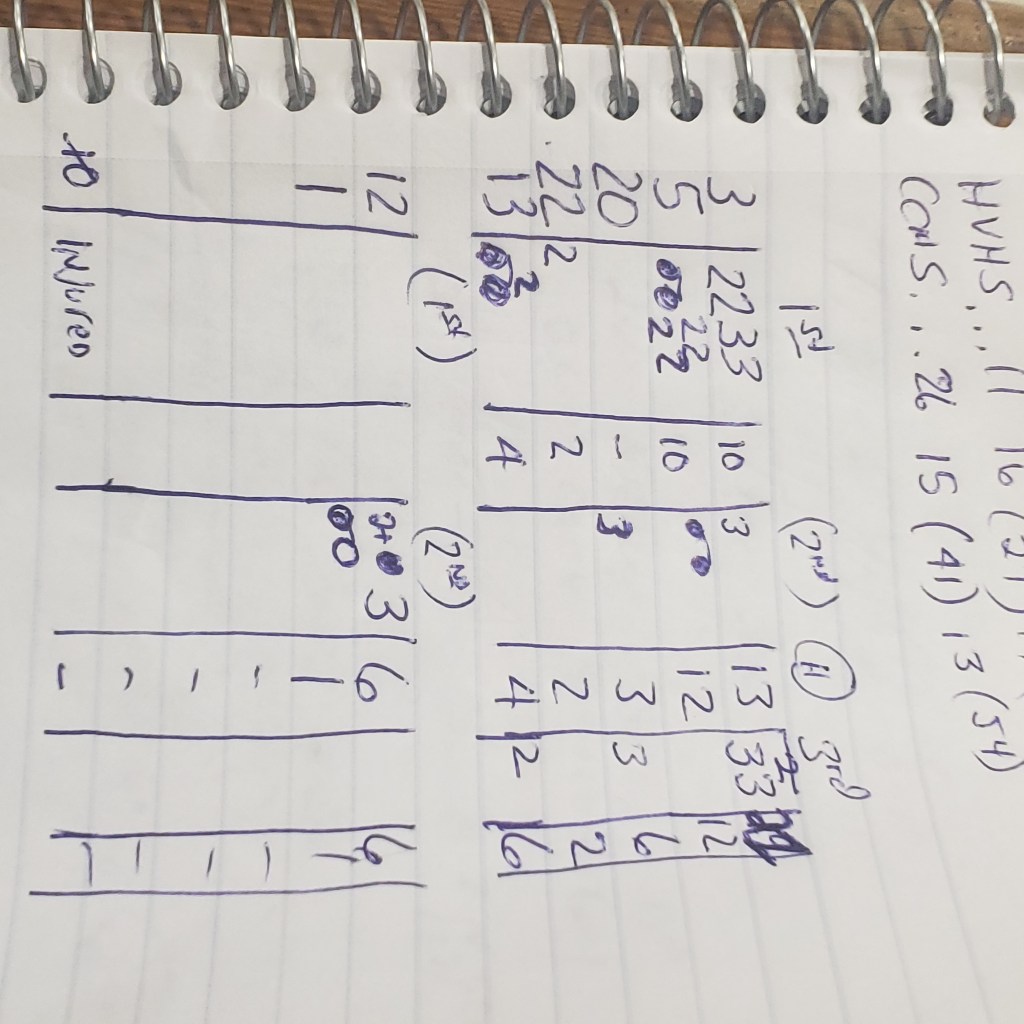 HVHS... 11 16
COHS... 26 15 (41) 13 (54)
1st (2nd) (H) 3rd
3 2233 10 3 13 33
5 22 22 10 12 12
20 - 3 3 3 6
22 2 2 2 2
13 2 4 4 2 6
(1st) (2nd)
12 3 6 6
1 1 1
- -
- -
- -
10 INJURED - -